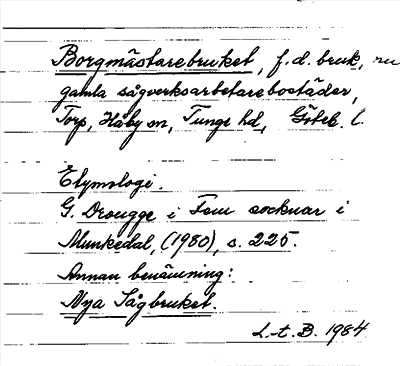 Borgmästarebruket, f.d. bruk, nu
gamla sågverksarbetarebostäder,
Torp, Håby sn, Tunge hd, Göteb. l.
Etymologi.
G. Drougge i Fem socknar i
Munkedal, (1980), s. 225.
Annan benämning:
Nya Sågbruket.
L-t. B. 1984